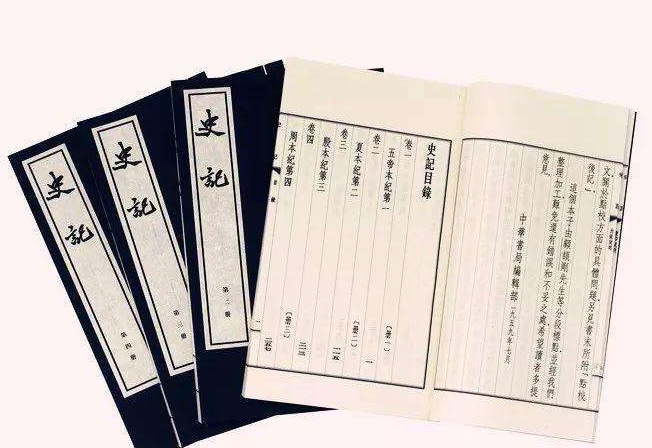 史記
第四册
史記
第三册
史記
第二册
文關於點校方面的具體問題，另見書末所附「點校
後記」。
這個本子由顧頡剛先生等分段標點，並經我們
整理加工，難免還有錯誤和不妥之處，希望讀者多提
意見。
中華書局編輯部 一九五九年七月
史記目錄
卷一
五帝本紀第一 〔册一〕 一
卷二
夏本紀第二 〔册二〕
卷三
殷本紀第三
卷四
周本紀第四 〔册三〕